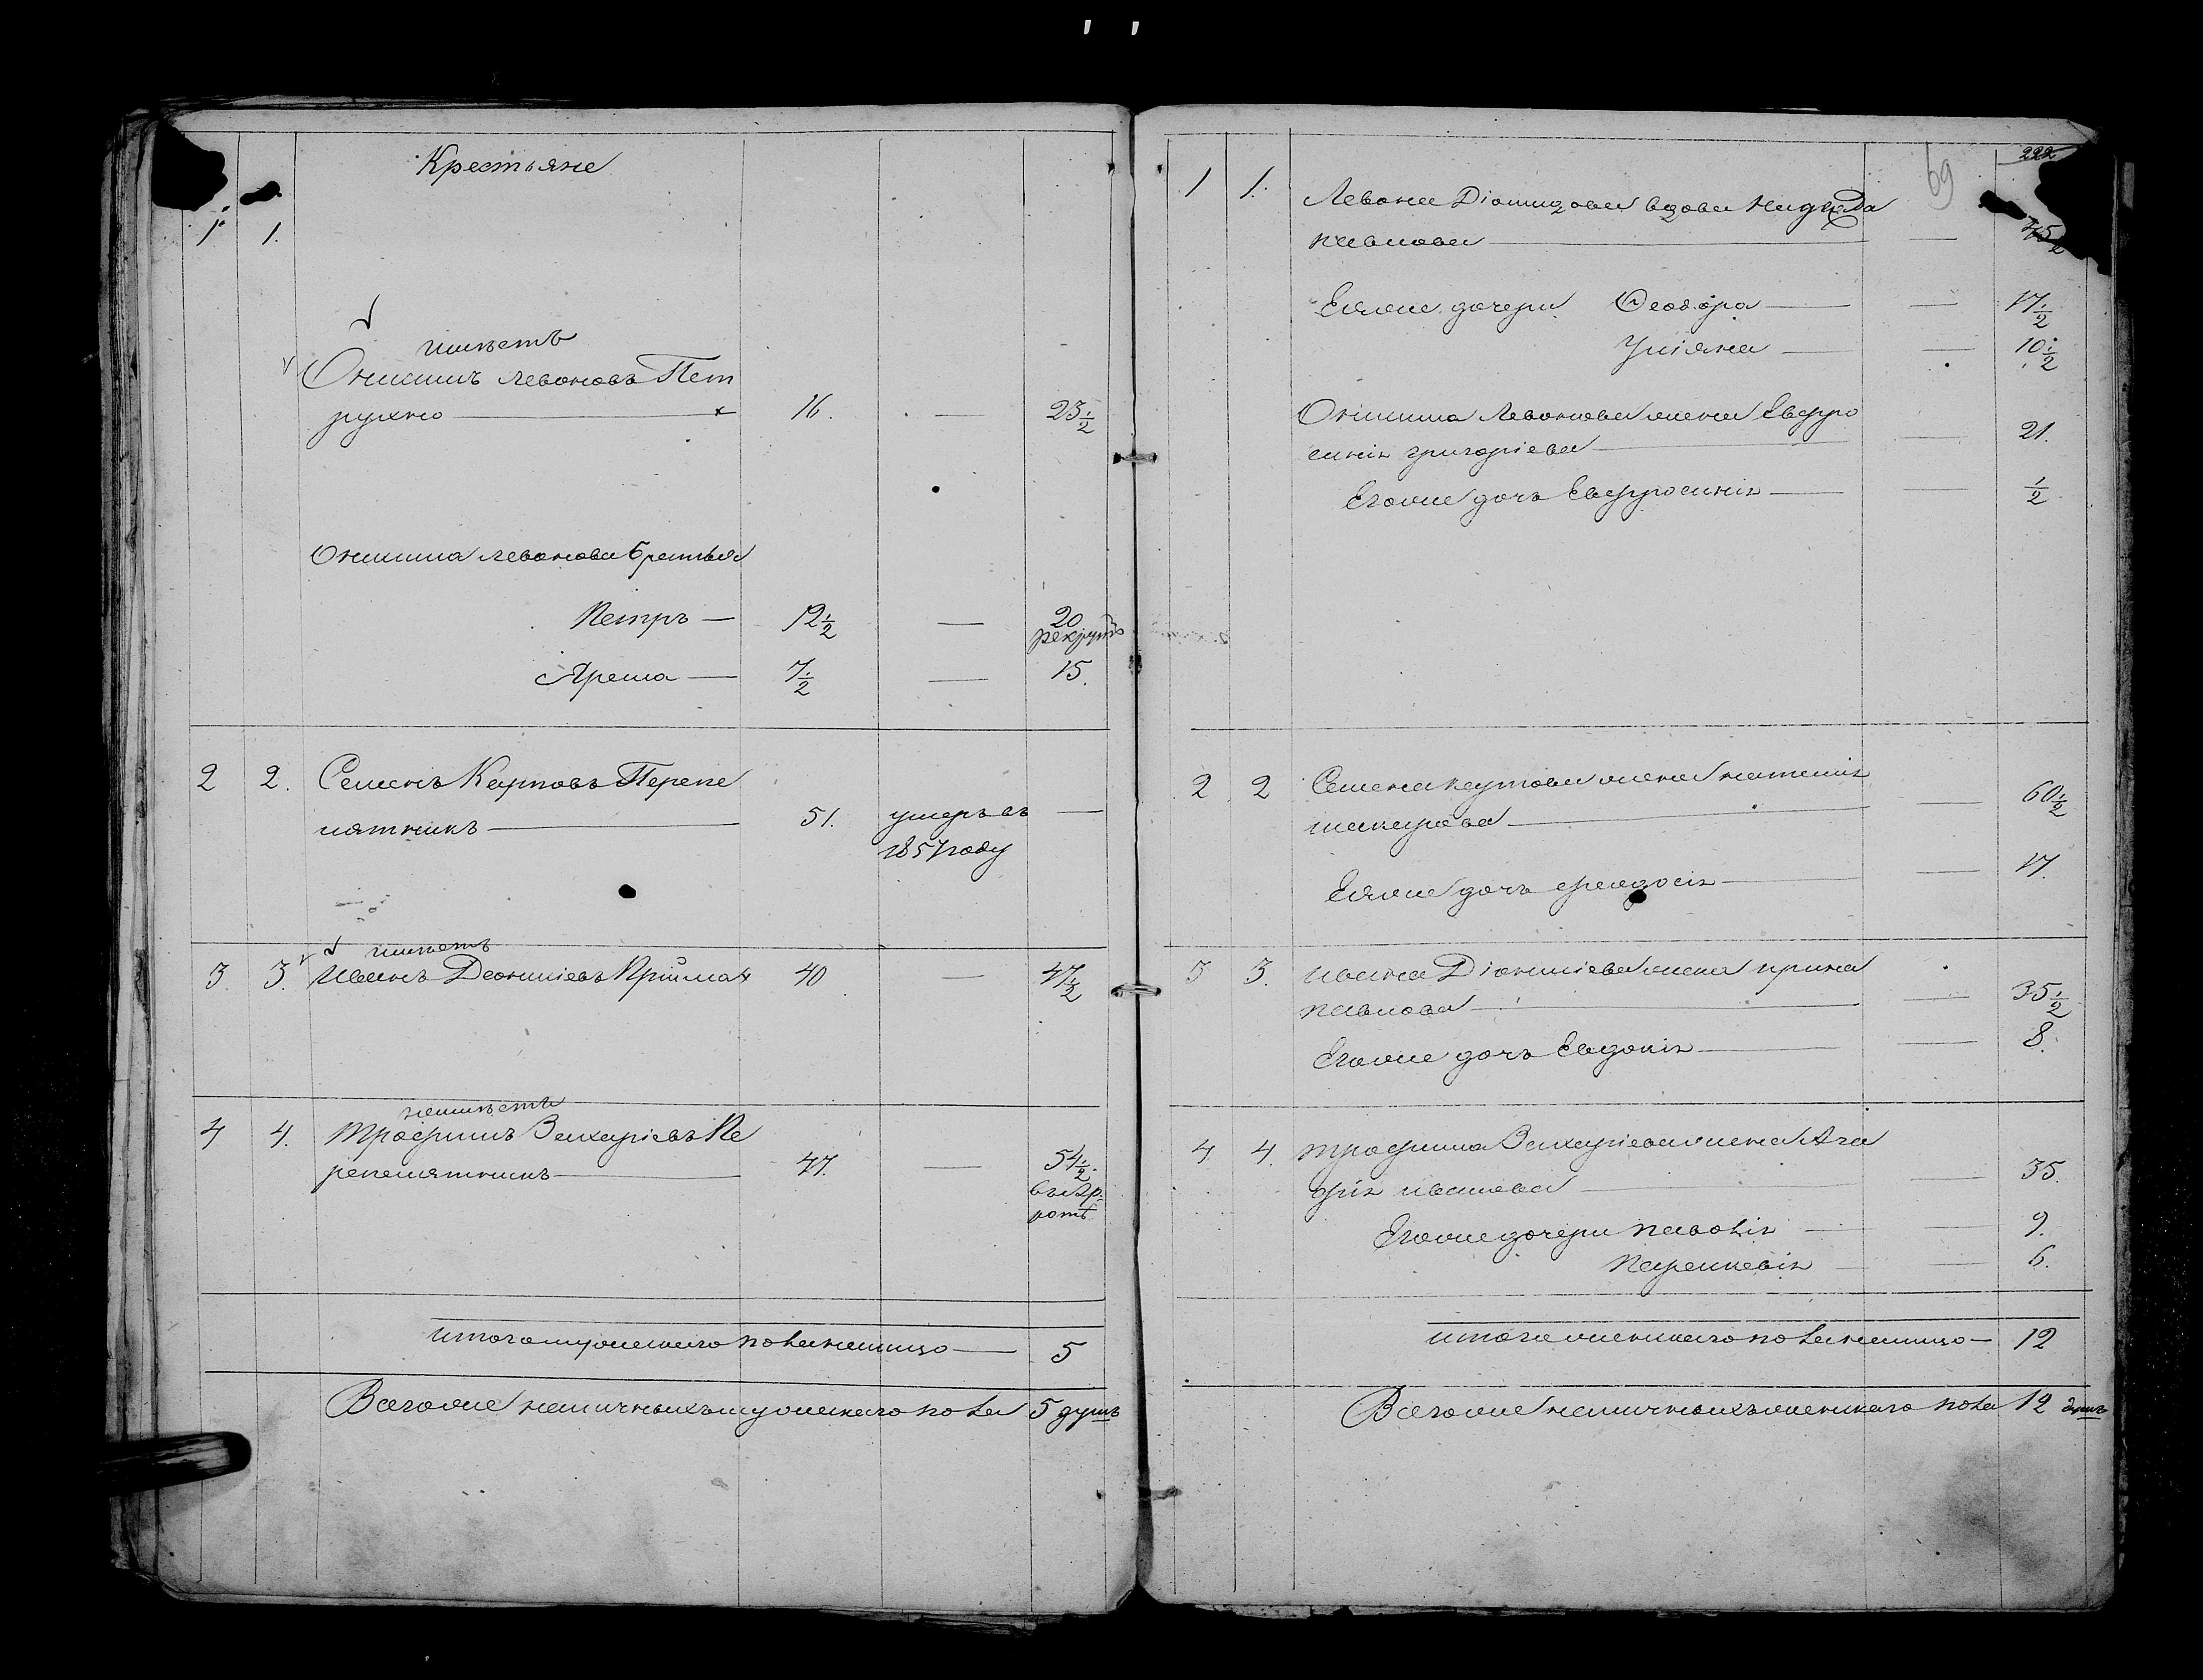 Крестьяне
1. 1.
имѣетъ
Онисимъ Левоновъ Пет
рухно — 16. — 23 1/2
Онисима Левонова братья
Петръ — 12 1/2 — 20
рекрутъ
Ярема — 7 1/2 — 15.
2 2. Семенъ Карповъ Перепе
лятникъ — 51. умеръ въ —
1857 году
имѣетъ
3. 3. Иванъ Деонисіевъ Пріймак 40 — 47 1/2
неимѣетъ
4 4. Трофимъ Захаріевъ Пе
репелятникъ — 47. — 54 1/2.
итого мужескаго пола налицо — 5
Всегоже наличныхъ мужескаго пола 5 душъ
69
222
1 1. Левона Діомидова вдова
павлова — — 45 1/2
Еяже дочери Феодора — — 17 1/2
Уліяна — — 10 1/2
Онисима Левонова жена Евфро
синія григоріева — — 21.
Егоже дочь Евфросинія — — 1/2
2 2 Семена карпова жена наталія
макарова — — 60 1/2
Еяже дочь феодосія — — 17.
3 3. ивана Діонисіева жена ирина
павлова — — 35 1/2
Егоже дочь Евдокія — — 8.
4 4. трофима Захаріева жена Ага
фія иванова — — 35.
Егоже дочери — — 9.
параскевія — — 6.
итого женскаго пола налицо — 12
Всегоже наличныхъ женскаго пола 12 душъ